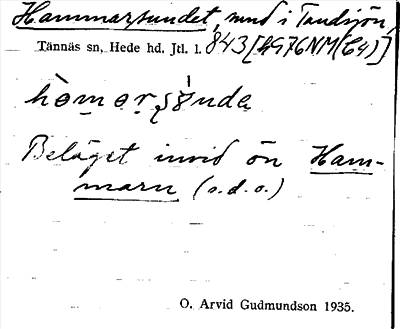 Hammarsundet, sund i Tandsjön,
Tännäs sn, Hede hd. Jtl. l. 843 [4976NM(C4)]
Beläget invid ön Ham-
marn (s.d.o.)
O. Arvid Gudmundson 1935.